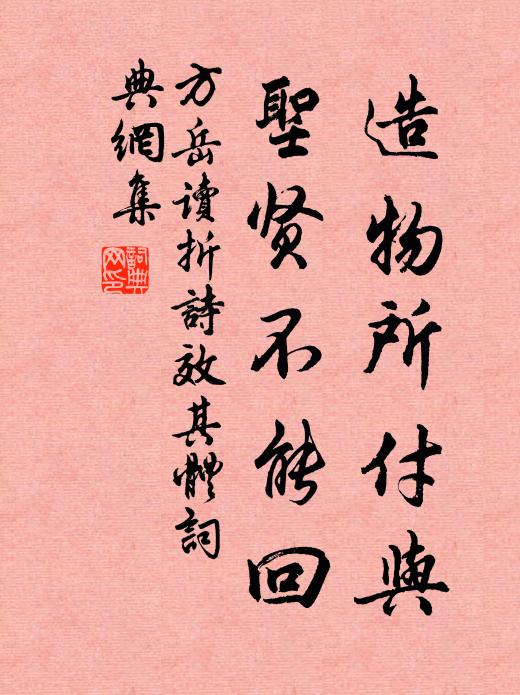 造物所付與
聖贤不能回
方岳讀折詩效其體詞
典網集
詞典
网印